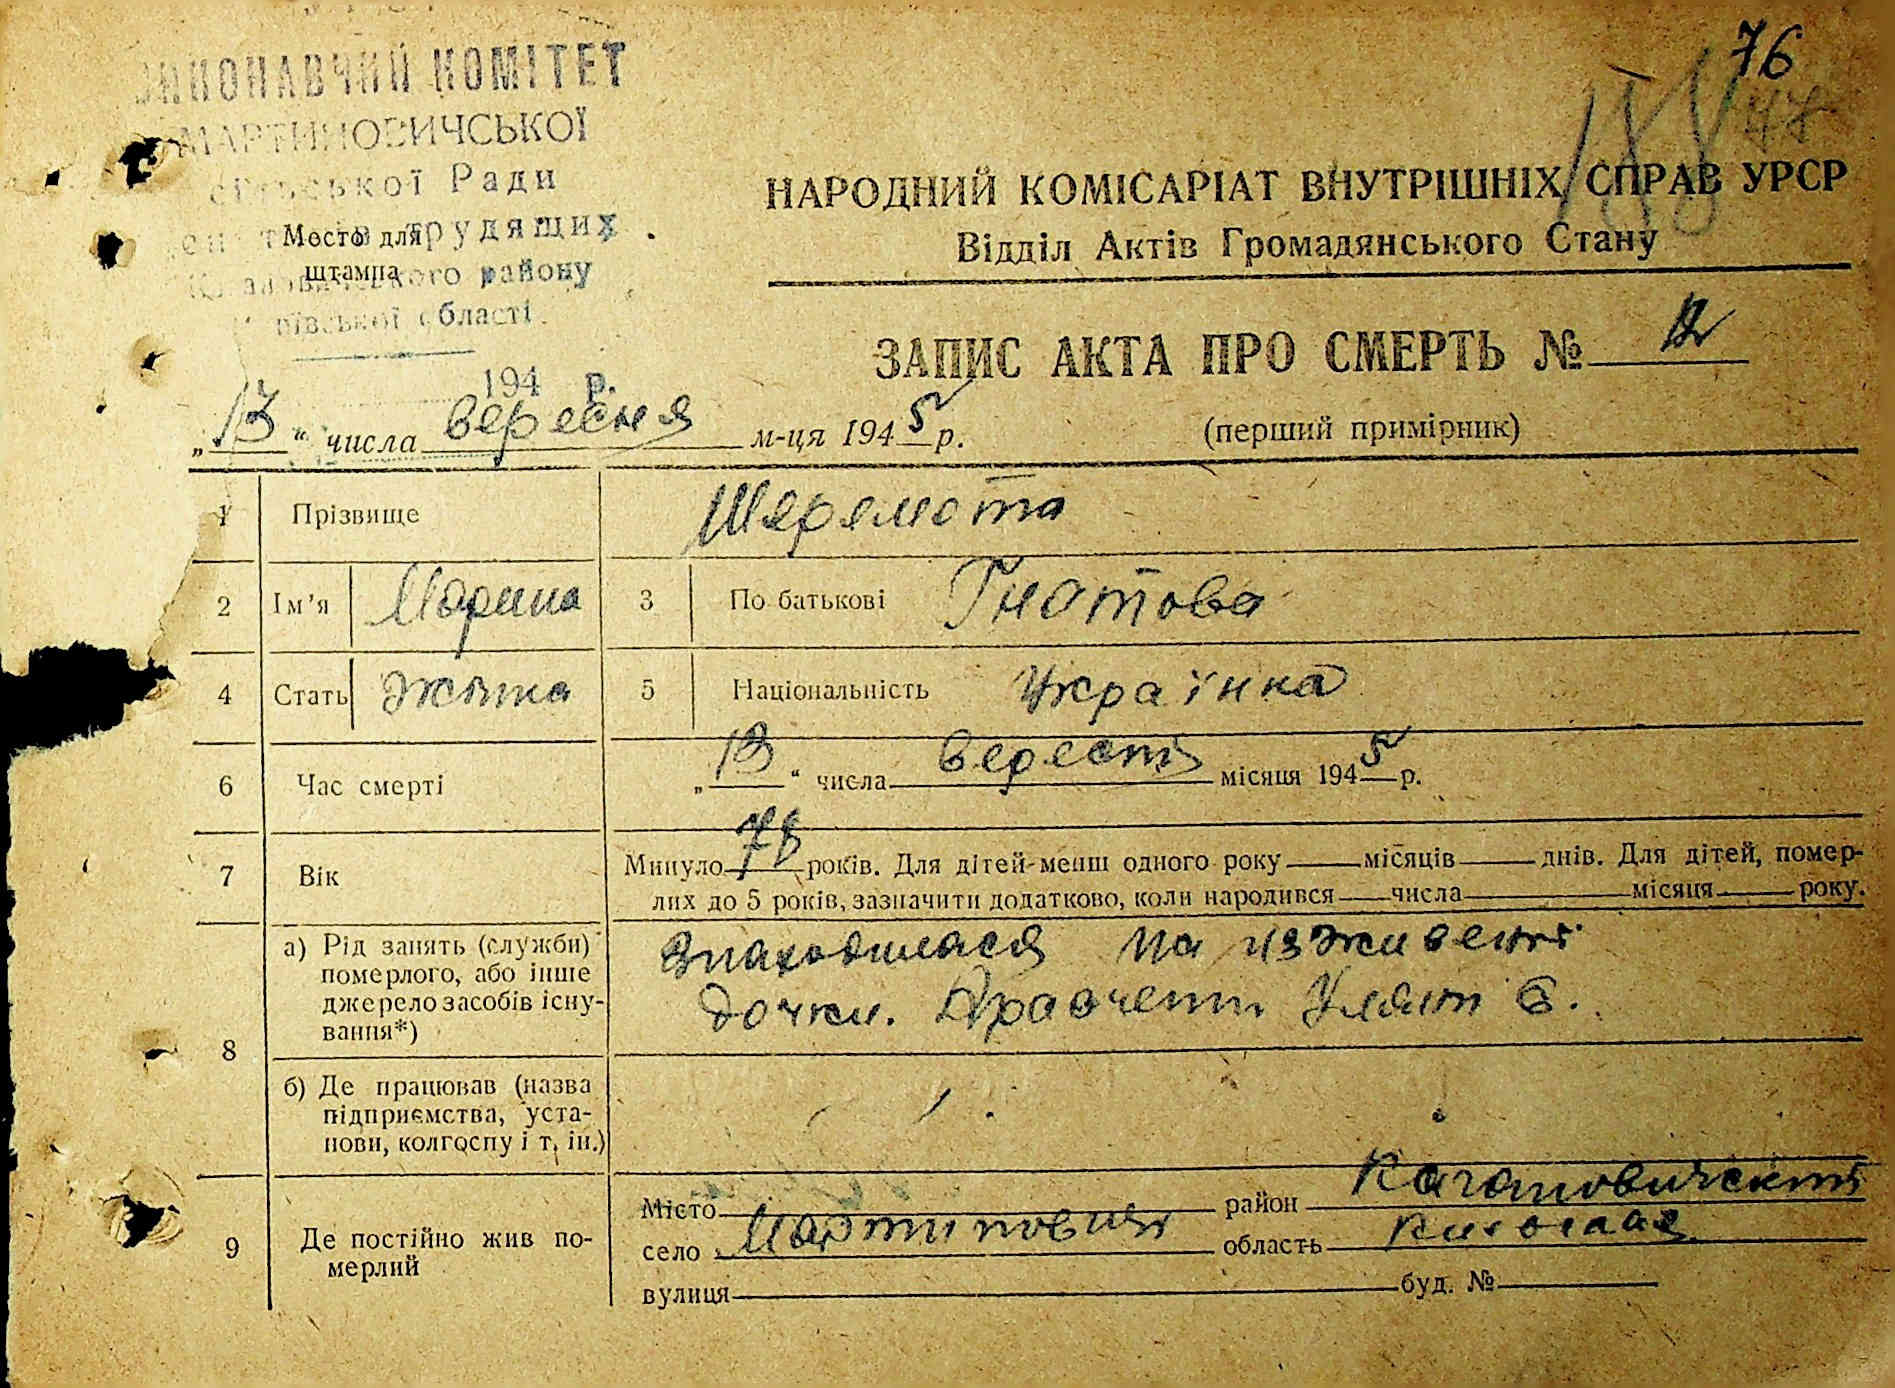 ВИКОНАВЧИЙ КОМІТЕТ
МАРТИНОВИЧСЬКОЇ
сільської Ради
трудящих
Место для
штампа
району
Київської області
194 р.
76
188
47
НАРОДНИЙ КОМІСАРІАТ ВНУТРІШНІХ СПРАВ УРСР
Відділ Актів Громадянського Стану
ЗАПИС АКТА ПРО СМЕРТЬ № 12
„13“ числа вересня м-ця 1945 р.
(перший примірник)
1 Прізвище Шеремета
2 Ім’я Марина 3 По батькові Гнатова
4 Стать 5 Національність Українка
6 Час смерті „13“ числа місяця 1945 р.
7 Вік Минуло 78 років. Для дітей-менш одного року місяців днів. Для дітей, помер-
лих до 5 років, зазначити додатково, коли народився числа місяця року.
8 а) Рід занять (служби) Знаходилася на
померлого, або інше дочки. Уляни Є.
джерело засобів існу-
вання*)
б) Де працював (назва
підприємства, уста-
нови, колгоспу і т. ін.)
9 Де постійно жив по-
мерлий
Місто район
село Мартиновичі область
вулиця буд. №